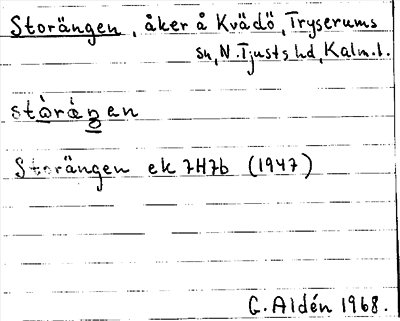 Storängen, åker å Kvädö, Tryserums
sn, N. Tjusts hd, Kalm. l.
stòràn̥en
Storängen ek 7H7b (1947)
G. Aldén 1968.